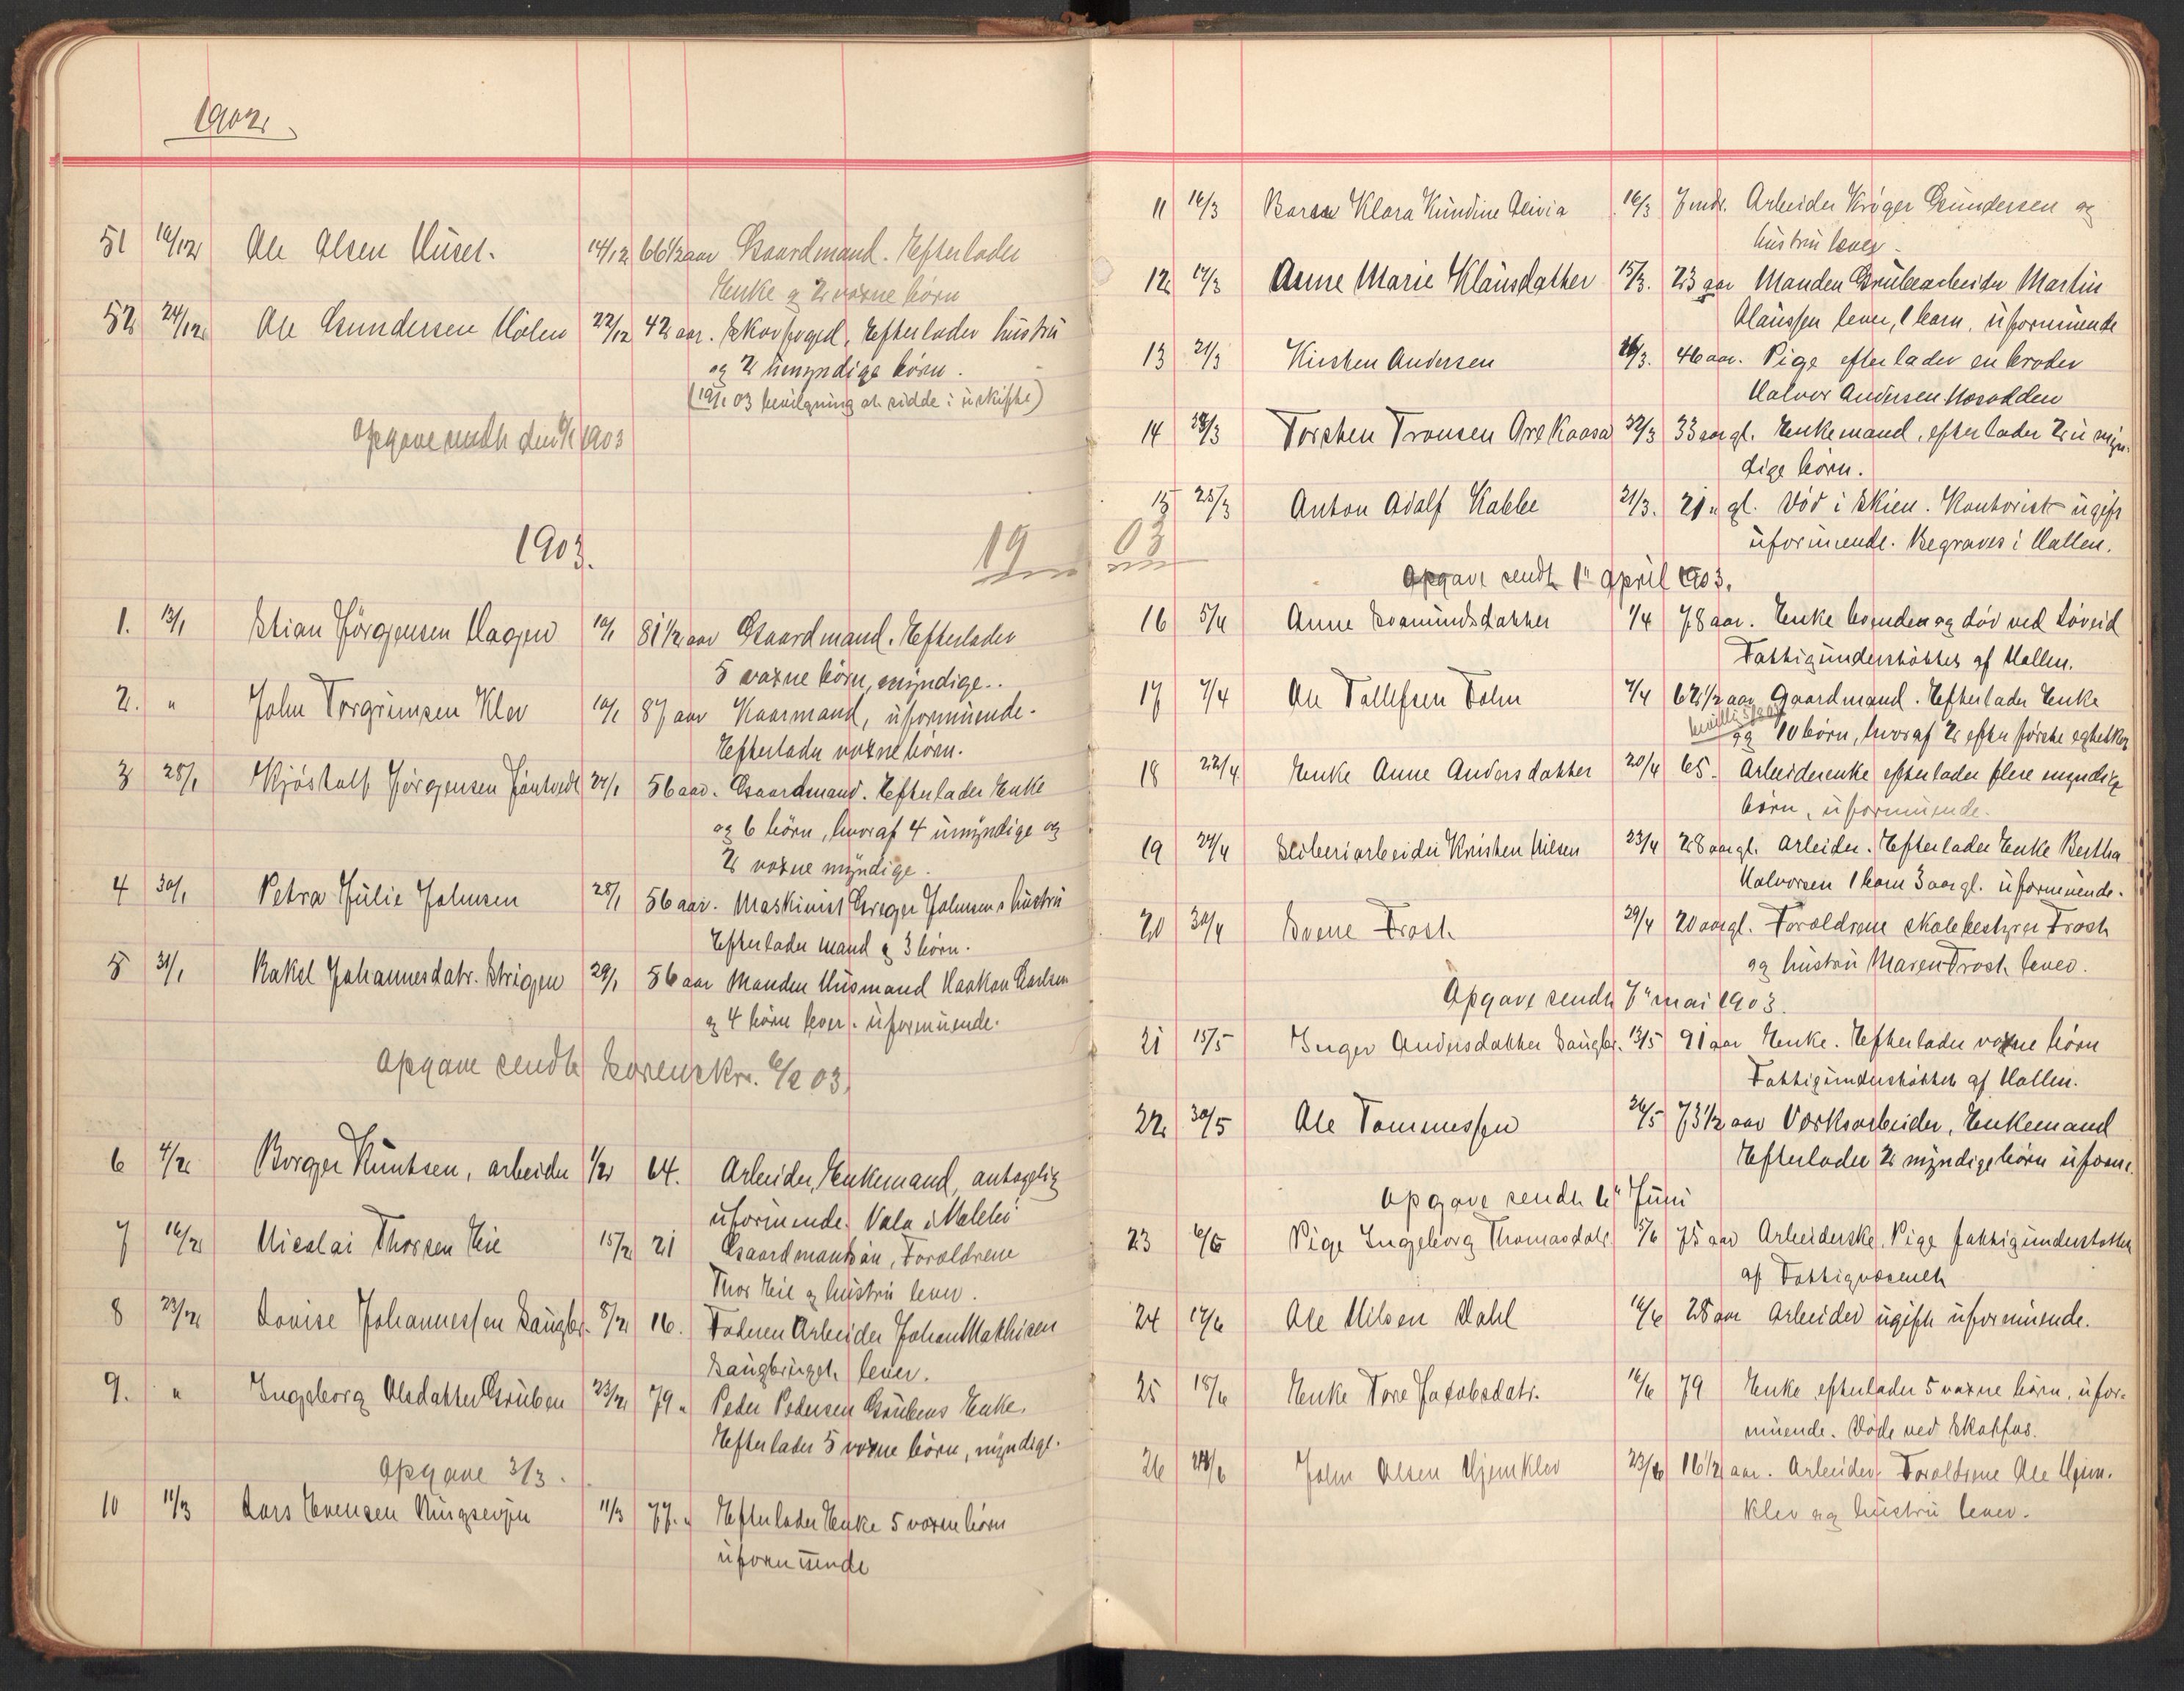 1902
51 16/12 Ole Olsen Huset. 14/12 66 1/2 aar Gaardmand. Efterlader
Enke og 2 voxne börn
52 24/12 Ole Gundersen Holen 22/12 42 aar. Skovfoged, Efterlader hustru
og 2 umyndige börn.
(19/1 03 bevilgning at sidde i uskifte)
Opgave sendt den 6/1 1903
1903.
1. 13/1 Stian Jörgensen Hagen 10/1 81 1/2 aar Gaardmand. Efterlader
5 voxne börn, myndige..
2. " John Torgrimsen Klev 10/1 87 aar Kaarmand, uformuende.
Efterlader voxne börn.
3 28/1 Kjöstolf Jörgensen 24/1 56 aar. Gaardmand. Efterlader Enke
og 6 börn, hvoraf 4 umyndige og
2 voxne myndige.
4 30/1 Petra Julie Johnsen 28/1 56 aar. Maskinist Greger Johnsens hustru
Efterlader mand & 3 börn.
5 31/1 Rakel Johannesdatr. Strigen 29/1 56 aar Manden Husmand Haakon Carlsen
og 4 börn lever. uformuende.
Opgave sendt Sorenskr. 6/2 03.
6 4/2 Borger Knutsen, arbeider 1/2 64. Arbeider, Enkemand, antagelig
uformuende.
7 16/2 Nicolai Thorsen Eie 15/2 21 Gaardmandsön, Foraldrene
Thor Eie og hustru lever.
8 23/2 Lovise Johannessen Saugbr. 8/2 16. Faderen Arbeider Johan Mathisen
Saugbruget lever.
9. " Ingeborg Olsdatter Gruben 23/2 79 " Peder Pedersen Grubens Enke.
Efterlader 5 voxne börn, myndige.
Opgave 3/3.
10 11/3 Lars Evensen 11/3 77. " Efterlader Enke 5 voxen börn
uformuende
19 03
11 16/3 Barn Klara Kundine Olivia 16/3 7 mdr. Arbeider Kröger Gundersen og
hustru lever.
12 17/3 Anne Marie Klausdatter 15/3. 23 aar Manden Grubearbeider Martin
Olaussen lever, 1 barn, uformuende
13 21/3 Kirsten Andersen 46 aar. Pige efterlader en broder
Halvor Andersen Mosodden
14 28/3 Torsten Tronsen Aas Kaasa 22/3 33 aar gl. Enkemand, efterlader 2 umyn-
dige börn.
15 25/3 Anton Adolf Kabbe 21/3. 21 " gl. Död i Skien. Kontorist ugift
uformuende. Begraves i Hollen.
Opgave sendt 1" April 1903.
16 5/4 Anne Gromundsdatter 1/4 78 aar. Enke boende og död ved Löveid
Fattigunderstöttet af Hollen.
17 7/4 Ole Tollefsen Dolen 7/4 62 1/2 aar Gaardmand. Efterlader Enke
og 10 börn, hvoraf 2 efter förste egtesk
18 22/4 Enke Anne Andersdatter 20/4 65. Arbeiderenke efterlader flere myndige
börn, uformuende.
19 24/4 Sliberiarbeider Kristen Nilsen 23/4 28 aar gl. Arbeider. Efterlader Enke Bertha
Halvorsen 1 barn 3 aar gl. uformuende.
20 30/4 Svene Frost 29/4 20 aar gl. Foraldrene skolebestyrer Frost
og hustru Maren Frost lever.
Opgave sendt 7" mai 1903.
21 15/5 Inger Andersdatter Saugbr. 13/5 91 aar Enke. Efterlader voxne börn
Fattigunderstöttet af Hollen.
22 30/5 Ole Tommessen 26/5 73 1/2 aar Værksarbeider, Enkemand
Efterlader 2 myndige börn uform.
Opgave sendt 6" Juni
23 6/6 Pige Ingeborg Thomasdatr. 5/6 75 aar Arbeiderske. Pige fattigunderstöttet
af Fattigvæsenet
24 17/6 Ole Nilsen Dahl 16/6 28 aar Arbeider ugift uformuende.
25 18/6 Enke Tore Jakobsdatr. 16/6 79 Enke efterlader 5 voxne börn, ufor-
muende. Döde ved Skotfos.
26 24/6 John Olsen Gjernklev 23/6 16 1/2 aar. Arbeider. Foraldrene Ole Gjern-
klev og hustru lever.